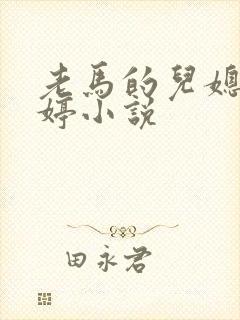 老馬的兒媳
婷小說
田永君